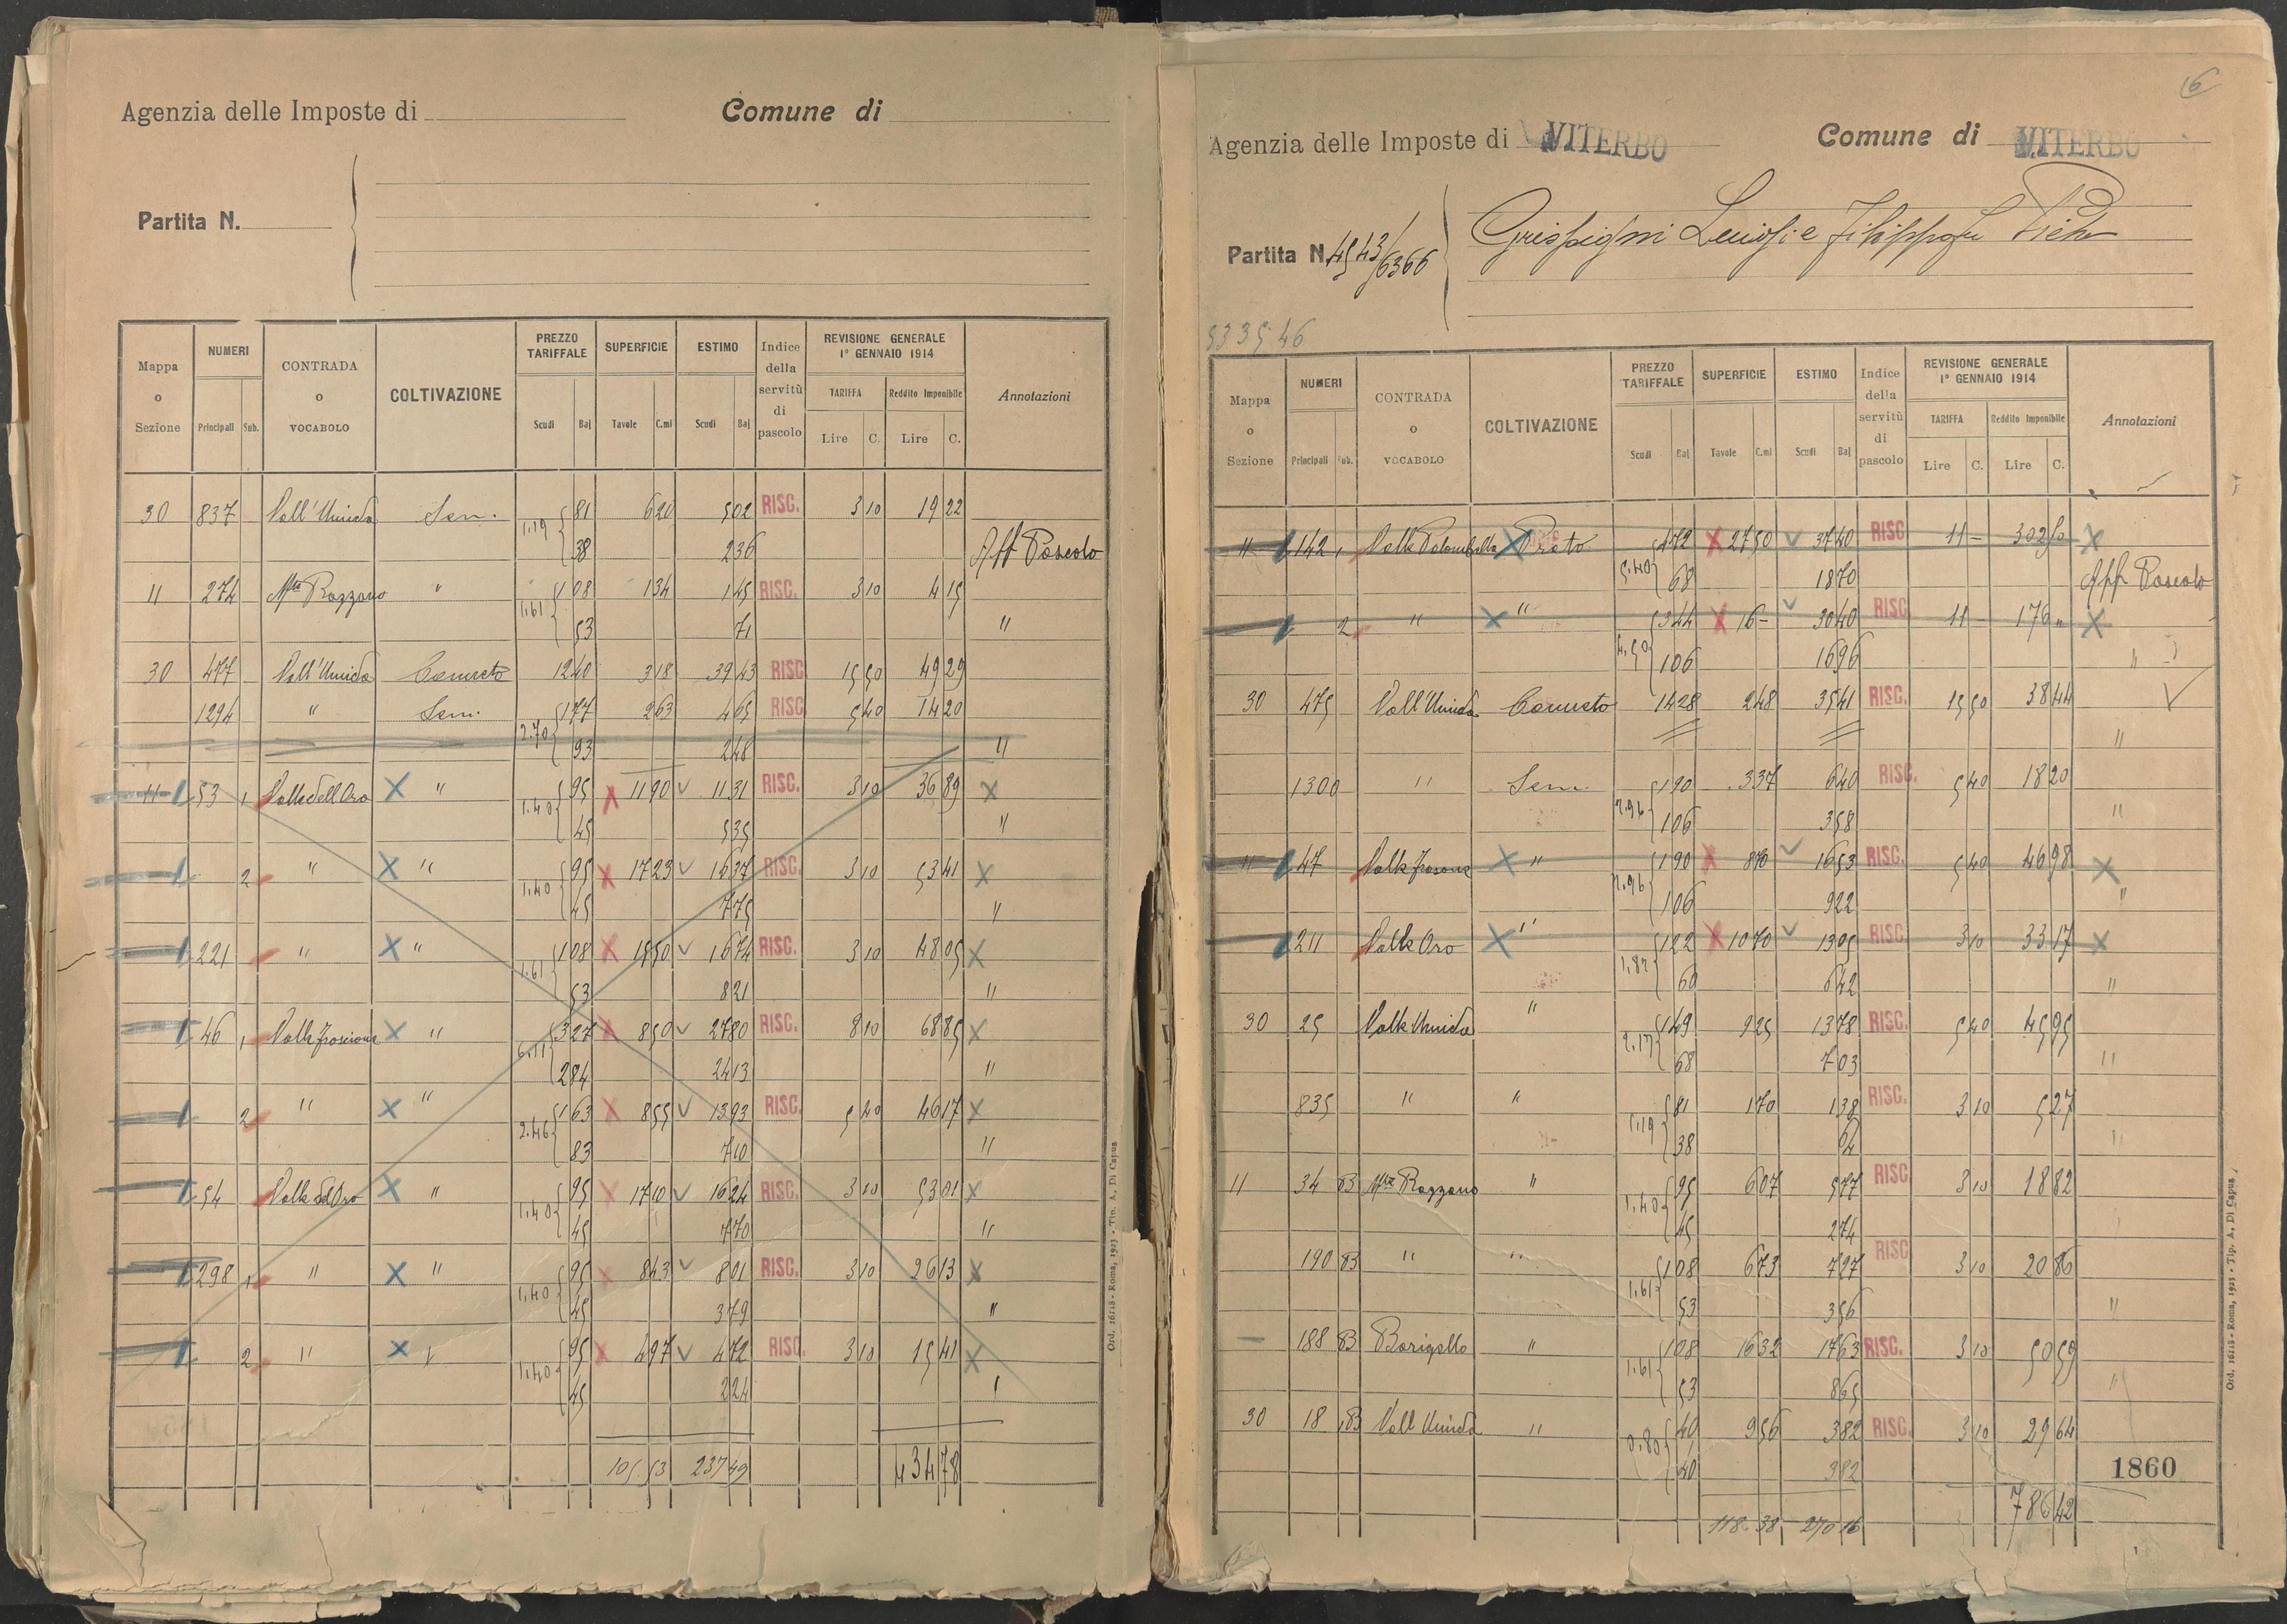 Agenzia delle Imposte di Comune di
Partita N.
Mappa o Sezione NUMERI Principali Sub. CONTRADA o VOCABOLO COLTIVAZIONE PREZZO TARIFFALE Scudi Baj SUPERFICIE Tavole C.mi ESTIMO Scudi Baj Indice della servitù di pascolo REVISIONE GENERALE 1° GENNAIO 1914 TARIFFA Lire C. Reddito Imponibile Lire C. Annotazioni
30 837 Vall'Umida Sem. 1.19 81 6 20 5 02 RISC. 3 10 19 22
38 2 36 Aff Pascolo
11 274 Mte Razzano " 1.61 1 08 1 34 1 45 RISC. 3 10 4 15
53 71 "
30 477 Vall'Umida Canneto 12 40 3 18 39 43 RISC 15 50 49 29
1294 " Sem. 2.70 1 77 2 63 4 65 RISC 5 40 14 20
93 2 48 "
11 53 1 Valle dell Oro X " 1.40 95 X 11 90 v 11 31 RISC. 3 10 36 89 X
45 5 35 "
2 " X " 1.40 95 X 17 23 v 16 37 RISC. 3 10 53 41 X
45 7 75 "
221 " X " 1.61 1 08 X 15 50 v 16 74 RISC. 3 10 48 05 X
53 8 21 "
46 1 X " 6.11 3 27 X 8 50 v 27 80 RISC. 8 10 68 85 X
2 84 24 13 "
2 " X " 2.46 1 63 X 8 55 v 13 93 RISC. 5 40 46 17 X
83 7 10 "
54 Valle del Oro X " 1.40 95 X 17 10 v 16 24 RISC. 3 10 53 01 X
45 7 70 "
298 1 " X " 1.40 95 X 8 43 v 8 01 RISC. 3 10 26 13 X
45 3 79 "
2 " X 1.40 95 X 4 97 v 4 72 RISC. 3 10 15 41 X
45 2 24
105.53 237 49 434 78
Ord. 16118 - Roma, 1923 - Tip. A. Di Capua
6
Agenzia delle Imposte di VITERBO Comune di VITERBO
Partita N. 4543/6366 Grispigni Luigi e Filippo fu
5335.46
Mappa o Sezione NUMERI Principali Sub. CONTRADA o VOCABOLO COLTIVAZIONE PREZZO TARIFFALE Scudi Baj SUPERFICIE Tavole C.mi ESTIMO Scudi Baj Indice della servitù di pascolo REVISIONE GENERALE 1° GENNAIO 1914 TARIFFA Lire C. Reddito Imponibile Lire C. Annotazioni
11 142 1 Valle Palombella X Prato 4 72 X 27 50 v 37 40 RISC 11 – 302 50 X
68 18 70 Aff Pascolo
2 " X " 4.50 3 44 X 16 – v 30 40 RISC 11 – 176 " X
1 06 16 96 "
30 475 Vall'Umida Canneto 14 28 2 48 35 41 RISC. 15 50 38 44
"
1300 " Sem. 2.96 1 90 3 37 6 40 RISC. 5 40 18 20
1 06 3 58 "
11 47 X " 2.96 1 90 X 8 70 v 16 53 RISC. 5 40 46 98 X
1 06 9 22 "
211 Valle Oro X " 1.82 1 22 X 10 70 v 13 05 RISC 3 10 33 17 X
60 6 42 "
30 25 Valle Umida " 2.17 1 49 9 25 13 78 RISC. 5 40 45 95
68 7 03 "
835 " " 1.19 81 1 70 1 38 RISC. 3 10 5 27
38 64 "
11 34 B Mte Razzano " 1.40 95 6 07 5 77 RISC 3 10 18 82
45 2 74
190 B " " 1.61 1 08 6 73 7 27 RISC 3 10 20 86
53 3 56 "
188 B " 1.61 1 08 16 32 17 63 RISC. 3 10 50 59
53 8 65 "
30 18 B Vall Umida " 0.80 40 9 56 3 82 RISC. 3 10 29 64
40 3 82
1860
118.38 270 16 786 42
Ord. 16118 - Roma, 1923 - Tip. A. Di Capua